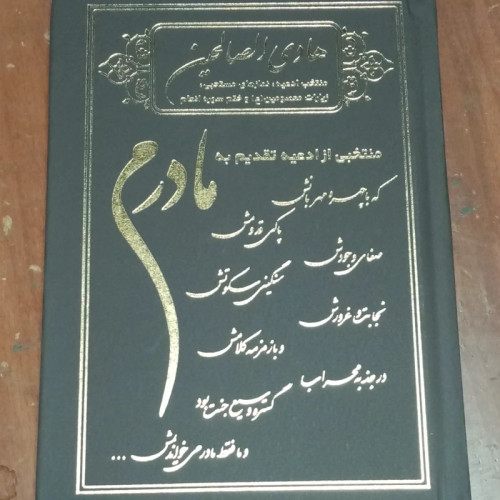 هادي الصالحين
منتخب ادعیه، نمازهای مستحبی،
زیارات معصومین(ع) و ختم سوره انعام
منتخبی از ادعیه تقدیم به
مادرم
که با چهره مهربانش
پاکی قدومش
صفای وجودش
سنگینی سکوتش
نجابت و غرورش
و با زمزمه کلامش
در جذبه محراب
گستره وسیع جنت بود
و ما فقط مادر می خواندیمش ...